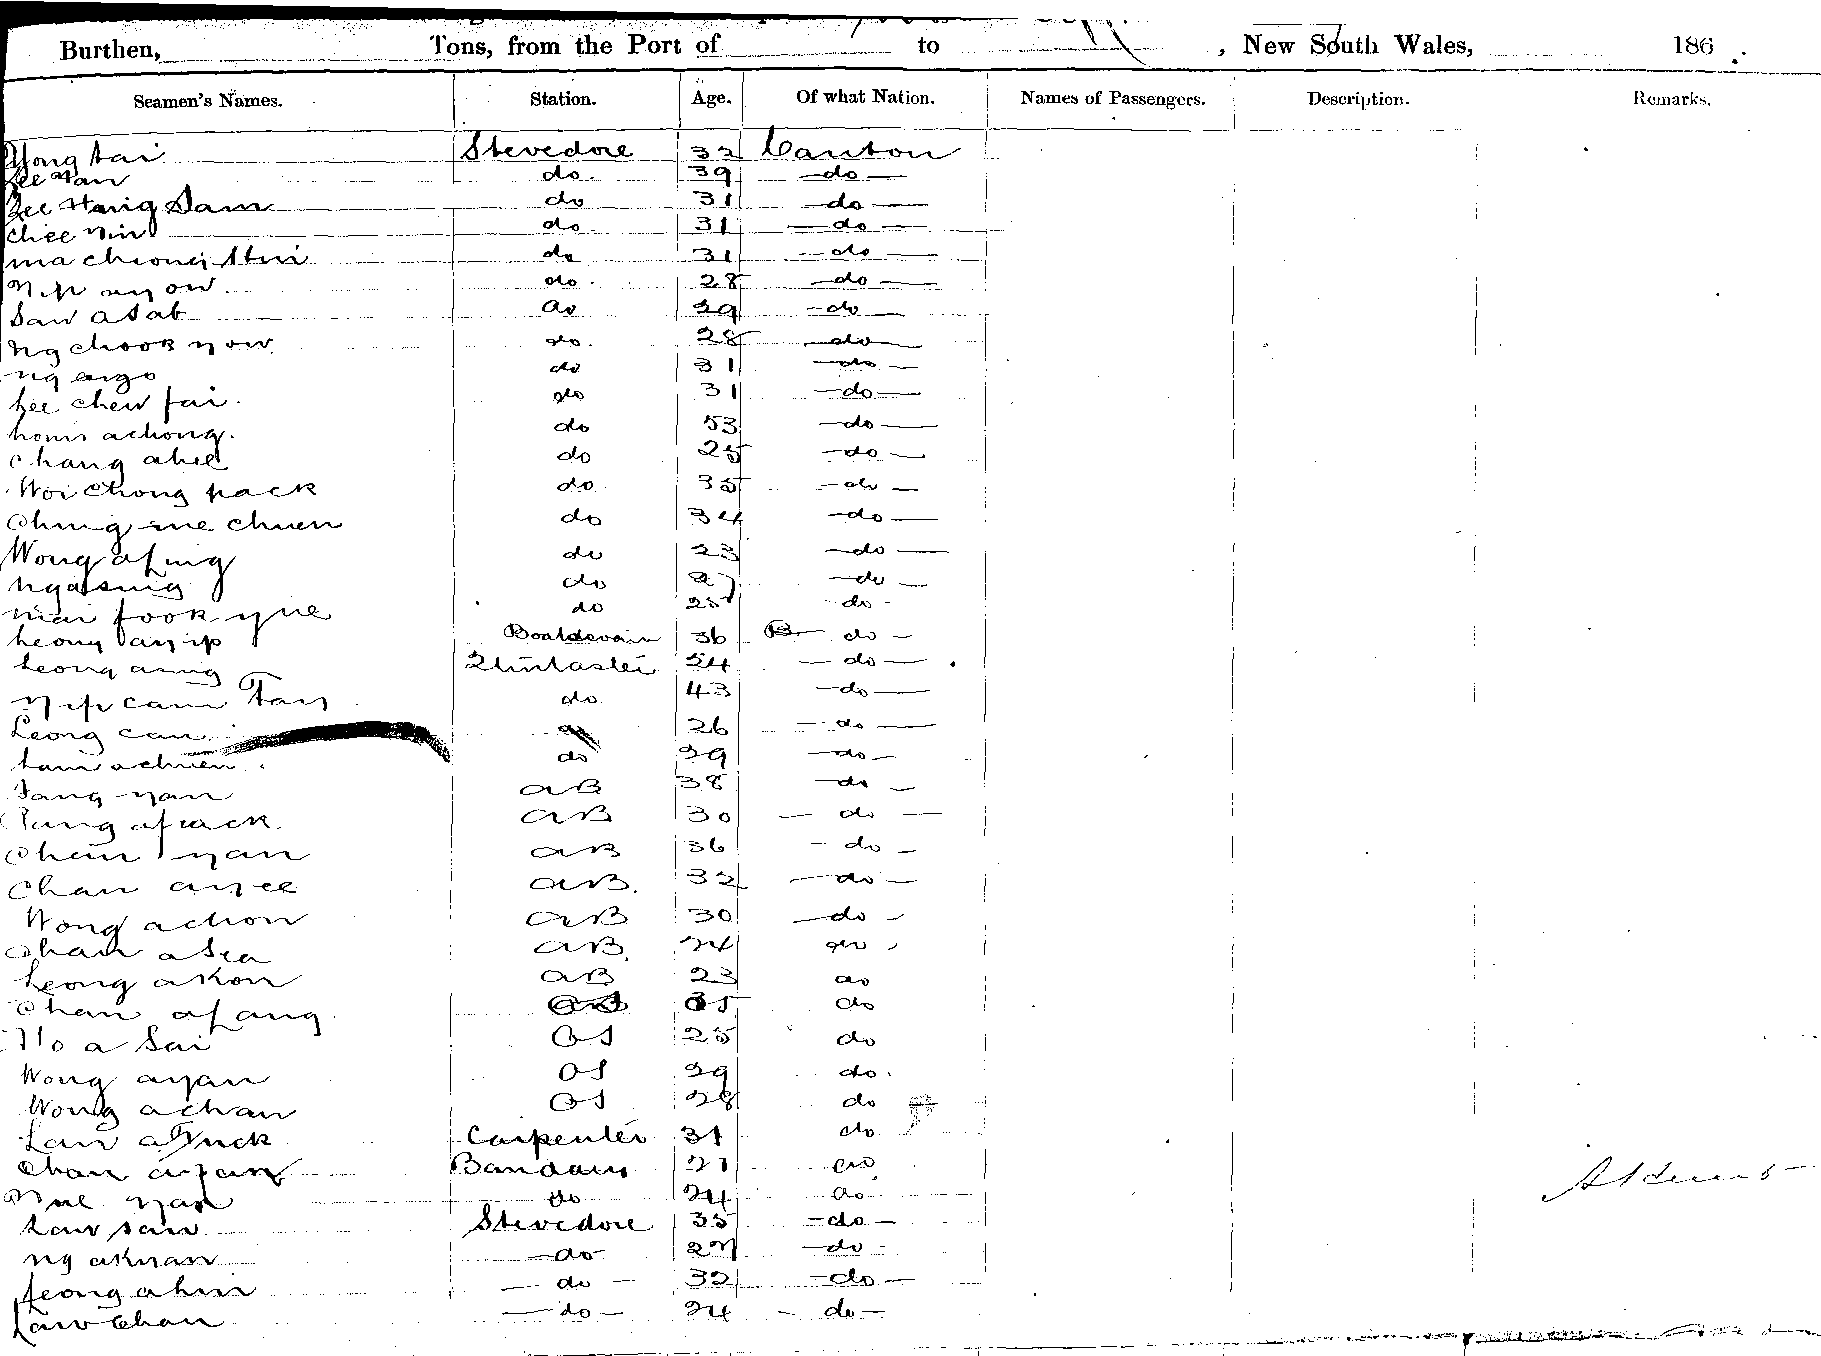 Burthen, Tons, from the Port of to , New South Wales, 186 .
Seamen's Names. Station. Age. Of what Nation. Names of Passengers. Description. Remarks.
Wong tai Stevedore 32 Canton
Lee Yan do 39 do
Lee Hang Sam do 31 do
Chee Yin do 31 do
ma cheong do 31 do
Yip ayow do 28 do
Saw asab do 29 do
ng chook yow do 28 do
ng ango do 31 do
Lee chew fai do 31 do
achong do 53 do
Chang ahee do 25 do
Woi Chong pack do 35 do
Chung sue chuen do 34 do
Wong afing do 23 do
ng asing do 27 do
mai fook yue do 25 do
Leong ayip Boatswain 36 do
Leong asing 24 do
Yip cam Tay do 43 do
Leong can do 26 do
Lam achuen do 29 do
Tang yan AB 38 do
Tang apack AB 30 do
Chan yan AB 36 do
Chan ayee AB 32 do
Wong achon AB 30 do
Chan asea AB 24 do
Leong akon AB 23 do
Chan afang 35 do
Ho a Sai OS 25 do
Wong ayan OS 29 do
Wong achan OS 28 do
Lau Carpenter 31 do
Chan 21 do
yan do 24 do
Law san Stevedore 35 do
ng akuan do 27 do
Leong ahin do 32 do
Law Chan do 24 do